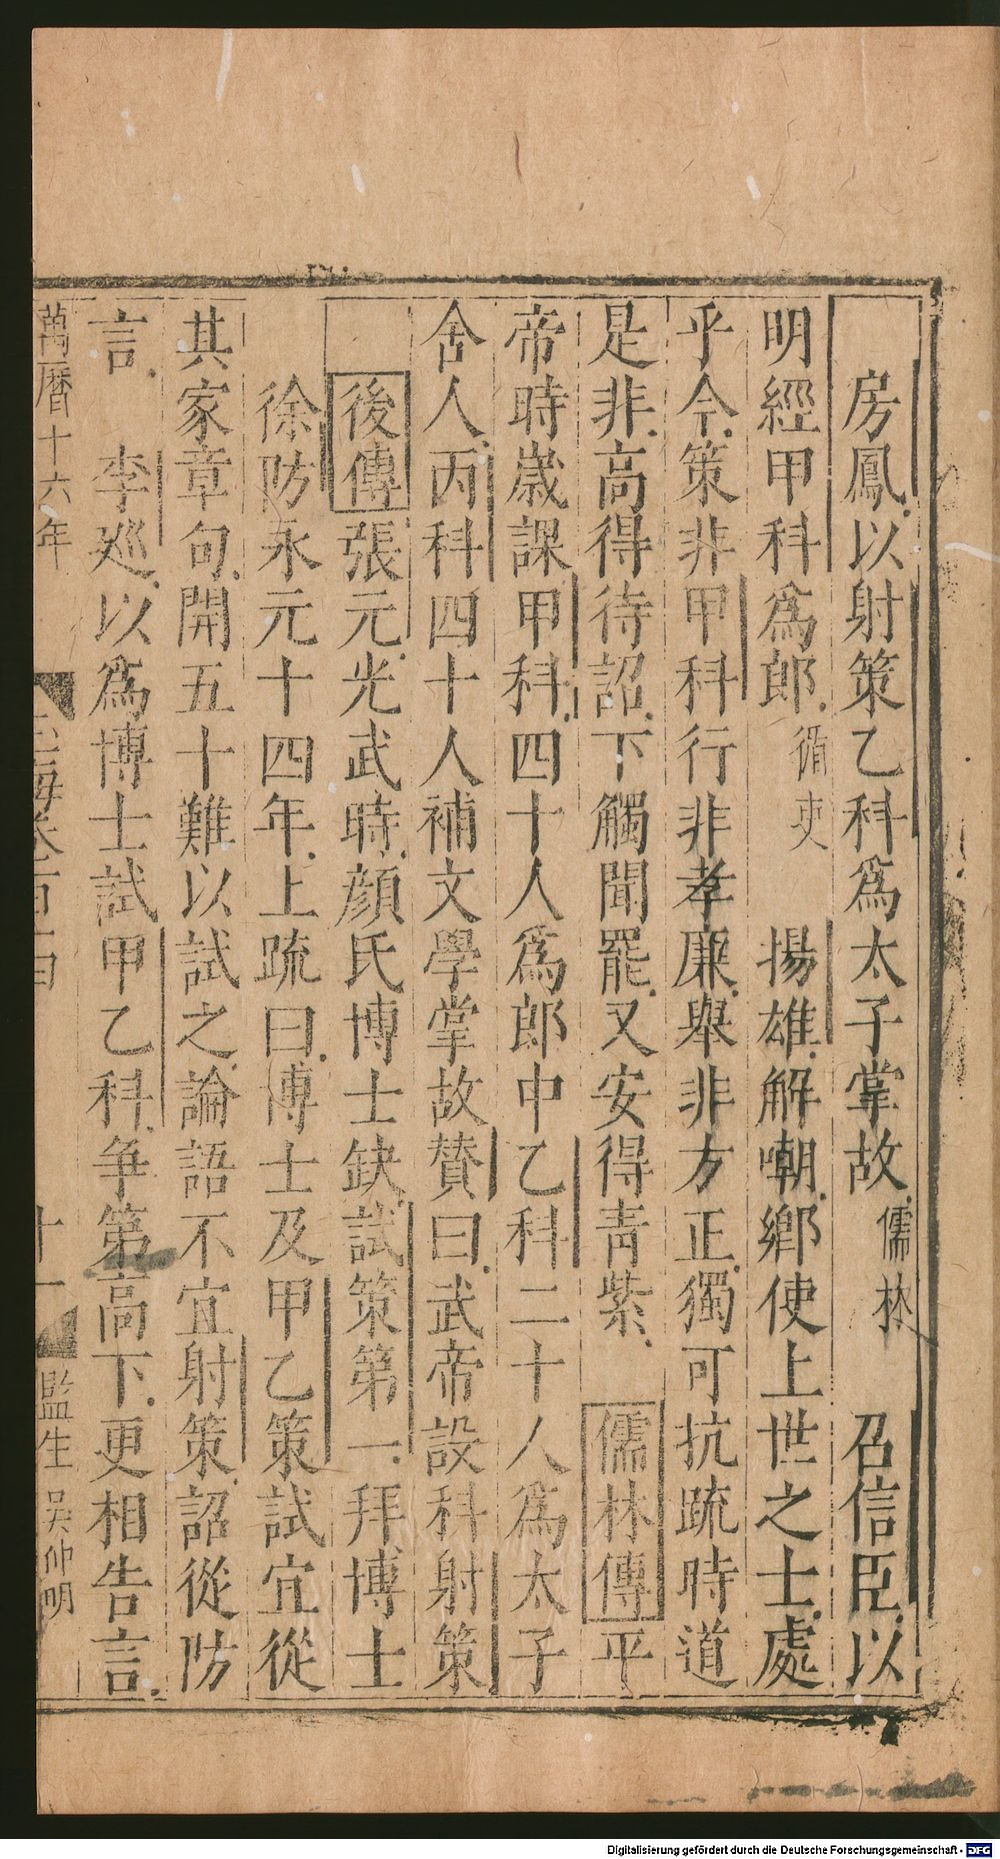 房鳳以射策乙科爲太子掌故儒林　召信臣以
明經甲科爲郎循吏　揚雄解嘲鄉使上世之士處
乎今策非甲科行非孝廉舉非方正獨可抗疏時道
是非高得待詔下觸聞罷又安得青紫　儒林傳平
帝時歲課甲科四十人爲郎中乙科二十人爲太子
舍人丙科四十人補文學掌故贊曰武帝設科射策
後傳張元光武時顏氏博士缺試策第一拜博士
徐防永元十四年上疏曰博士及甲乙策試宜從
其家章句開五十難以試之論語不宜射策詔從防
言　李巡以爲博士試甲乙科爭第高下更相告言
萬曆十六年　玉海卷百十四　十一　監生吴仲明
Digitalisierung gefördert durch die Deutsche Forschungsgemeinschaft - DFG